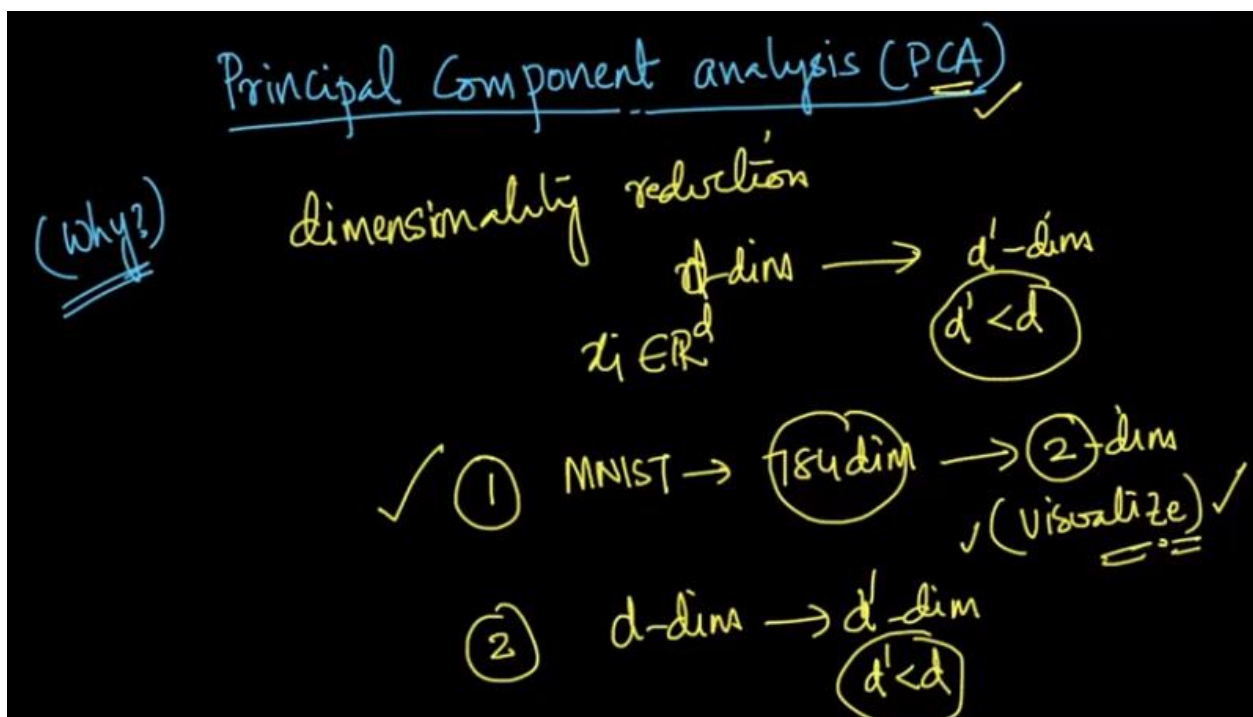 Principal Component analysis (PCA)
(Why?) dimensionality reduction
d-dims → d'-dims
xi ∈ ℝ^d d' < d
① MNIST → 784 dim → 2-dims
(Visualize)
② d-dims → d'-dim
d' < d